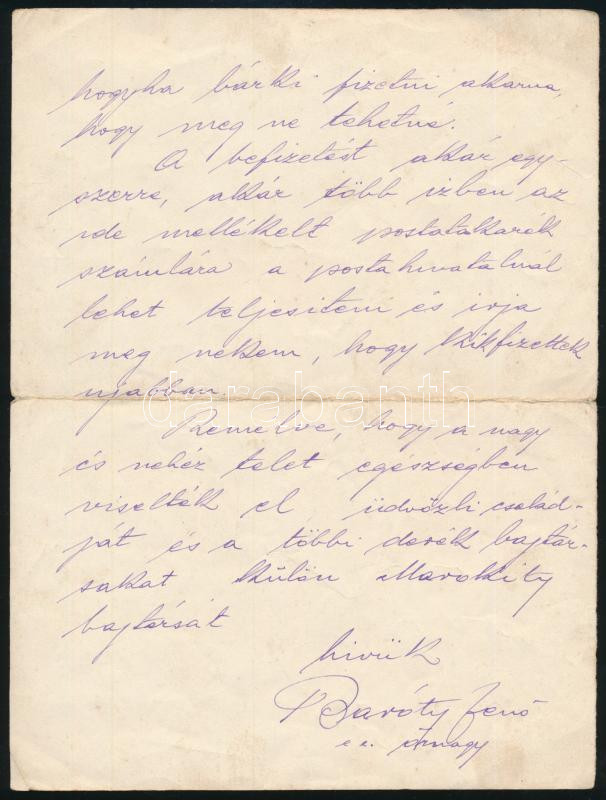 hogyha bárki fizetni akarna,
hogy meg ne tehetné.
A befizetést akár egy-
szerre, akár több izben az
ide mellékelt postatakarék
számlára a postahivatalnál
lehet teljesiteni és irja
meg nekem, hogy kik fizettek
ujabban.
Remélve, hogy a nagy
és nehéz telet egészségben
viselték el üdvözli család-
ját és a többi derék bajtár-
sakat külön Marokity
bajtársát
hivük
Baróty Jenő
őrnagy
darabanth